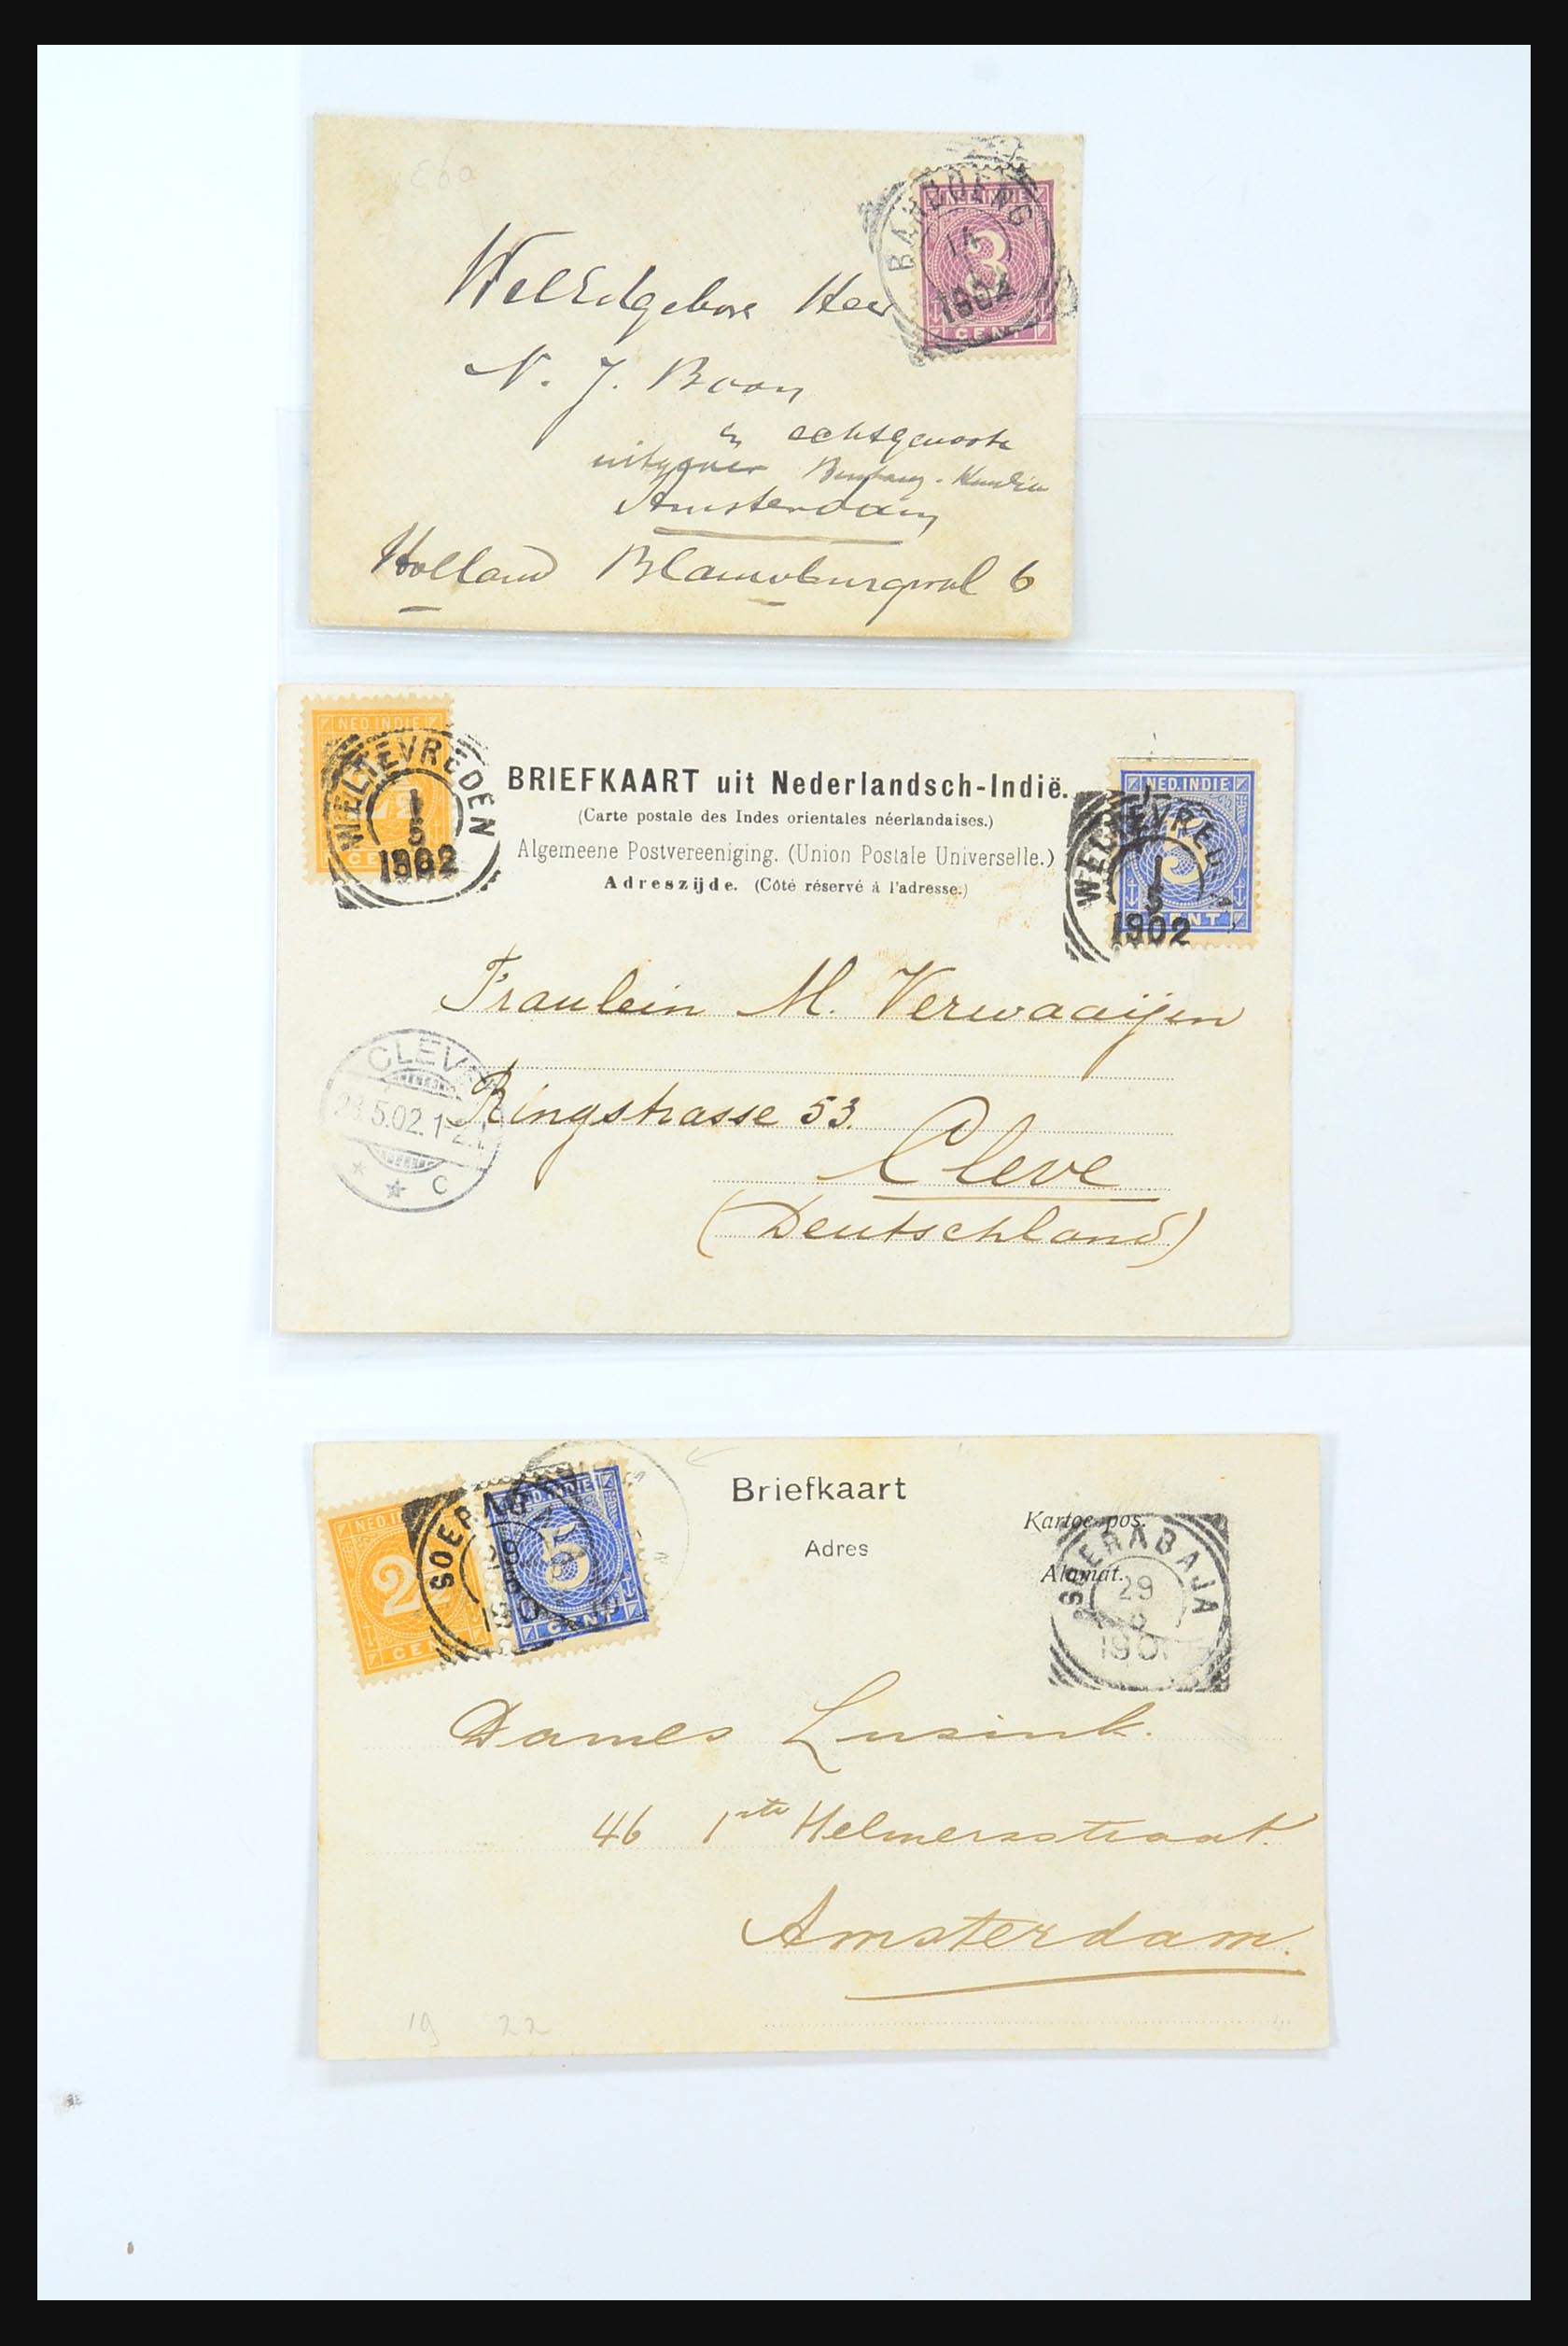 E6a
BANDOENG
14
1904
NED.INDIE
3
CENT
WelEdgebore Heer
N. J. Boon
en echtgenoote
uitgever
Amsterdam
Holland Blauwburgwal 6
NED.INDIE
CENT
WELTEVREDEN
1
5
1902
BRIEFKAART uit Nederlandsch-Indië.
(Carte postale des Indes orientales néerlandaises.)
Algemeene Postvereeniging. (Union Postale Universelle.)
Adreszijde. (Côté réservé à l'adresse.)
NED.INDIE
5
CENT
WELTEVREDEN
1
5
1902
Fraulein M. Verwaaijen
CLEVE
5.02.1-2
* * C
Ringstrasse 53.
Cleve
(Deutschland)
NED.I
2
CEN
SOERABAJA
NED.INDIE
5
CENT
Briefkaart
Adres
Kartoe pos.
Alamat.
SOERABAJA
29
190
Dames Lusink.
46 1ste Helmersstraat.
Amsterdam.
19 22